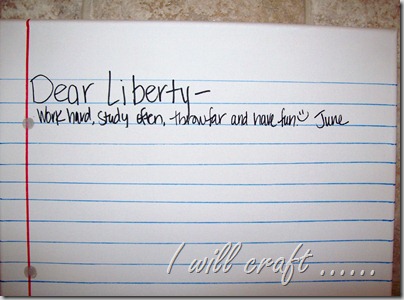 Dear Liberty-
Work hard, study often, throw far and have fun☺ June
I will craft ......